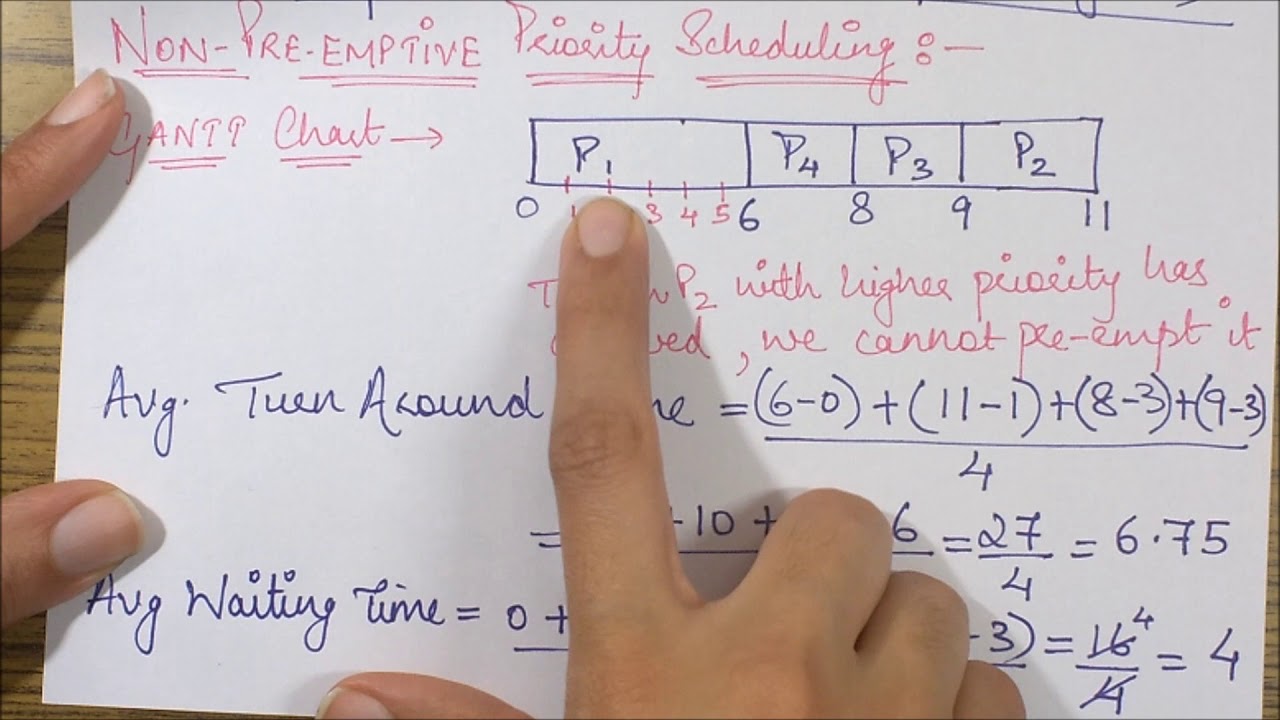 NON-PRE-EMPTIVE Priority Scheduling :-
GANTT Chart →
P1 P4 P3 P2
0 3 4 5 6 8 9 11
P2 with higher priority has
, we cannot pre-empt it
Avg. Turn Around = (6-0) + (11-1) + (8-3) + (9-3)
4
= 10 + 6 = 27 = 6.75
4
Avg Waiting Time = 0 + -3) = 16 4 = 4
4